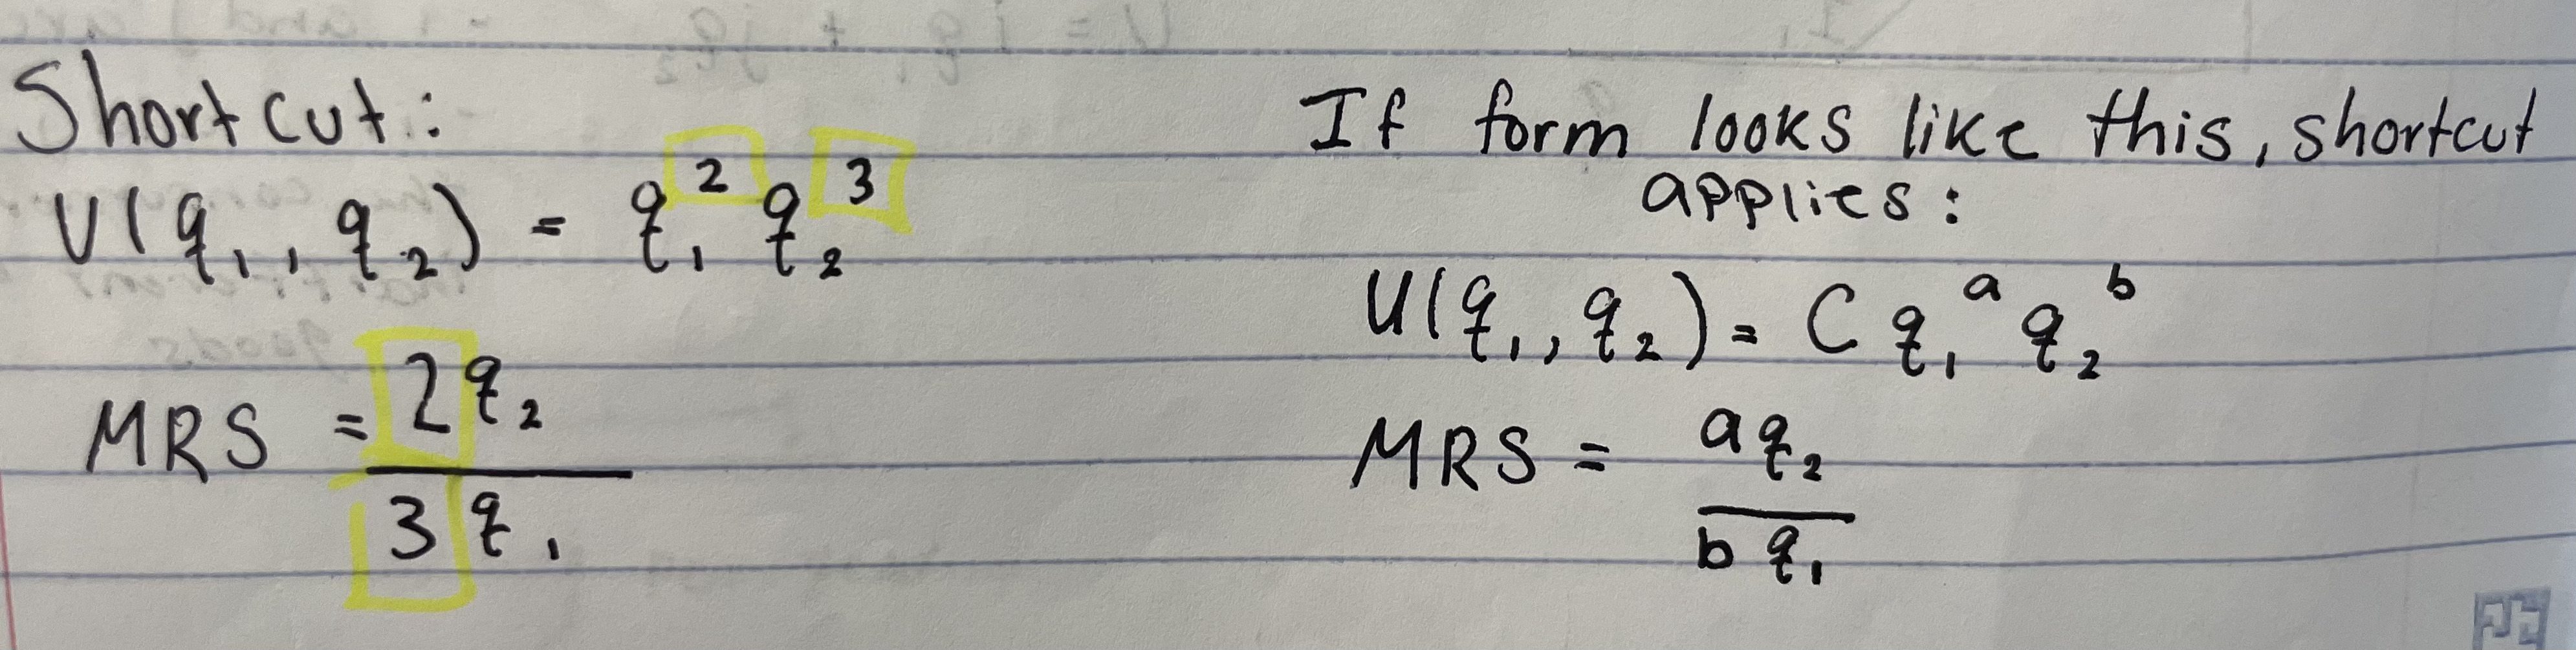 Shortcut:
U(q₁, q₂) = q₁² q₂³
MRS = 2q₂
3q₁
If form looks like this, shortcut
applies:
U(q₁, q₂) = C q₁ᵃ q₂ᵇ
MRS = aq₂
bq₁
U = iq₁ + jq₂
goods